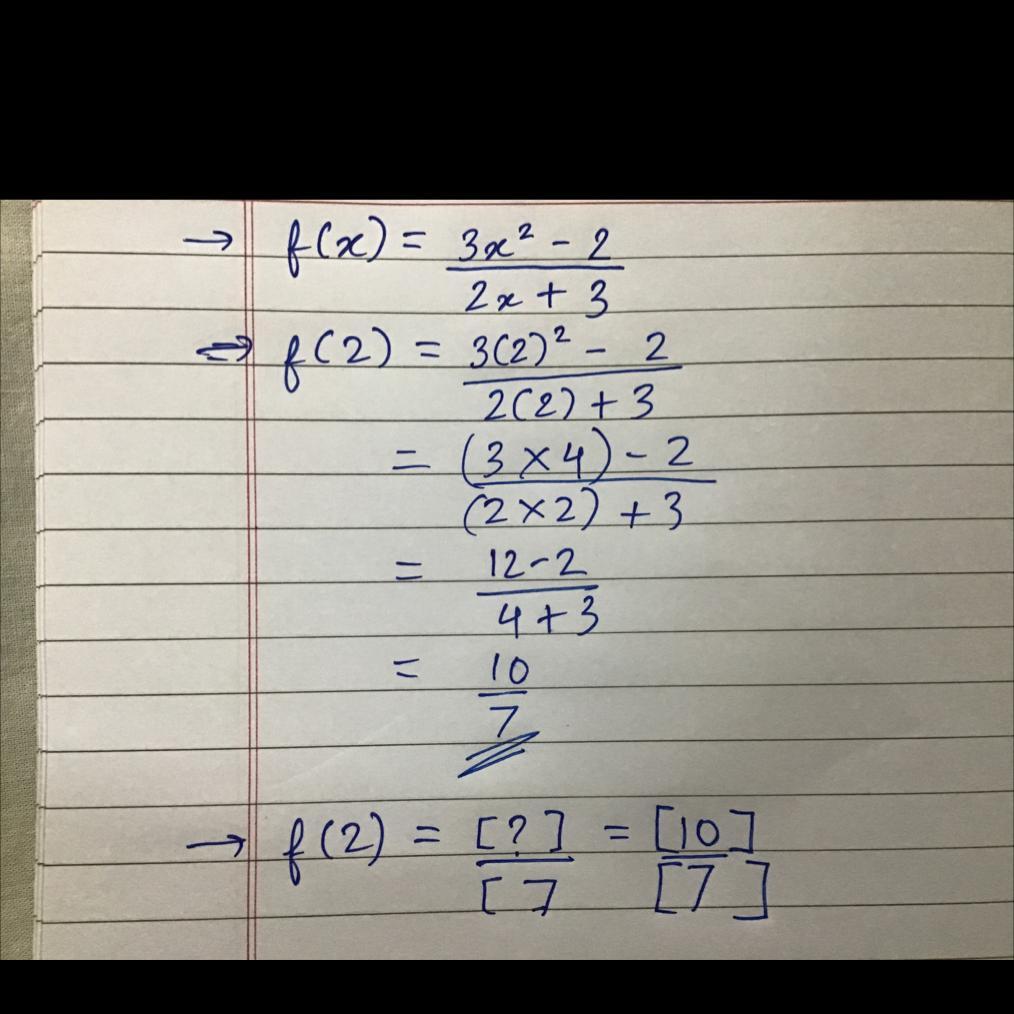 → f(x) = (3x² - 2)/(2x + 3)
⇒ f(2) = (3(2)² - 2)/(2(2) + 3)
= ((3 × 4) - 2)/((2 × 2) + 3)
= (12 - 2)/(4 + 3)
= 10/7
→ f(2) = [?]/[ ] = [10]/[7]